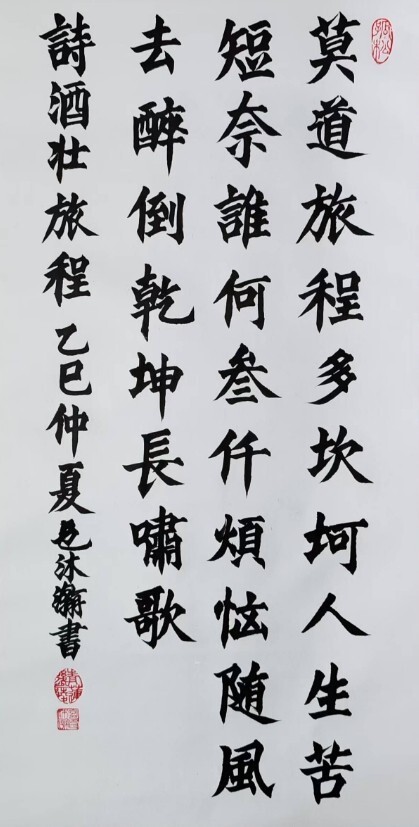 莫道旅程多坎坷人生苦
短奈誰何叁仟煩恼随風
去醉倒乾坤長嘯歌
詩酒壮旅程乙巳仲夏沐瀚書